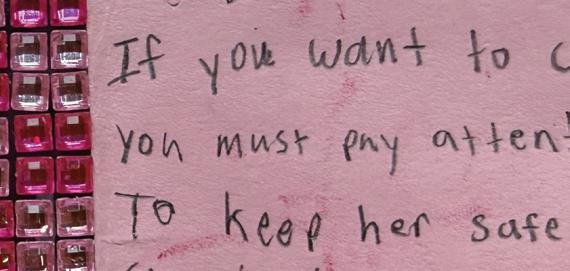 If you want to c
you must pay atten
To keep her safe